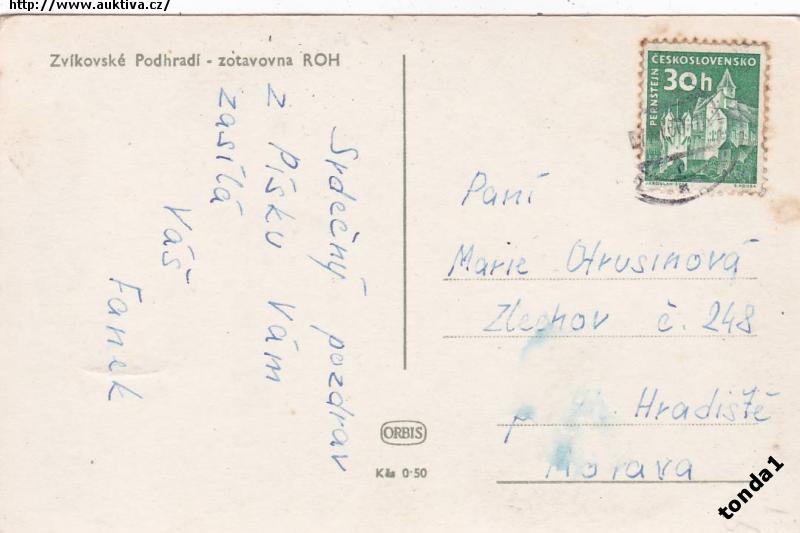 http://www.auktiva.cz/
Zvíkovské Podhradí - zotavovna ROH
Srdečný pozdrav
z Písku Vám
zasílá
Váš
Fanek
ORBIS
Kčs 0·50
ČESKOSLOVENSKO
30h
PERNŠTEJN
Paní
Marie Otrusinová
Zlechov č. 248
p. Uh. Hradiště
Morava
tonda1